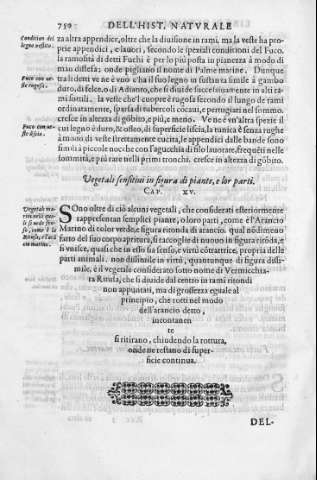 750 DELL'HIST. NATVRALE
Condition del legno vestito.
za altra appendice, oltre che la diuisione in rami, ma la veste ha pro-
prie appendici, e lauori, secondo le speziali condizioni del Fuco.
la ramosità di detti Fuchi è per lo più posta in pianezza à modo di
man distesa; onde pigliano il nome di Palme marine. Dunque
Fuco con ve-
ste rugosa.
tra li detti ve ne è vno c'ha il suo legno in sostanza simile à gambo
duro, di felce, o di Adianto, che si diuide succeßiuamente in alti ra-
mi sottili. la veste che'l cuopre è rugosa secondo il lungo di rami
ordinatamente, sparsa di tubercoli cocaui, e pertugiati nel sommo.
Fuco con ve-
ste liscia.
cresce in altezza di góbito, e più, e meno. Ve ne è vn'altra spezie il
cui legno è duro, & osseo, di superficie liscia, la tunica è senza rughe
à modo di veste strettamente cucita, le appendici dalle bande sono
simili à picciole nocche con l'agucchia di filo lauorate, frequēti nelle
sommità, e più rare nelli primi tronchi. cresce in altezza di góbito.
Vegetali sensitiui in figura di piante, e lor parti.
CAP. XV.
SOno oltre di ciò alcuni vegetali, che considerati esteriormente
rappresentan semplici piante, o loro parti, come è l'Arancio
Marino di color verde, e figura ritonda di arancio. qual nōdimeno
furto del suo corpo apritura, si raccoglie di nuouo in figura ritōda, e
si vnisce, quasi che in esso sia senso, e virtù cōtrattiue, propria delle
parti animali. non dissimile in virtù, quantunque di figura dissi-
mile, è il vegetale considerato sotto nome di Vermicchia-
ra Rutila, che si diuide dal centro in rami ritondi
non appuntati, ma di grossezza eguale al
principio, che rotti nel modo
dell'arancio detto,
incontanen
te
si ritirano, chiudendo la rottura,
onde ne restano di super-
ficie continua.
DEL-